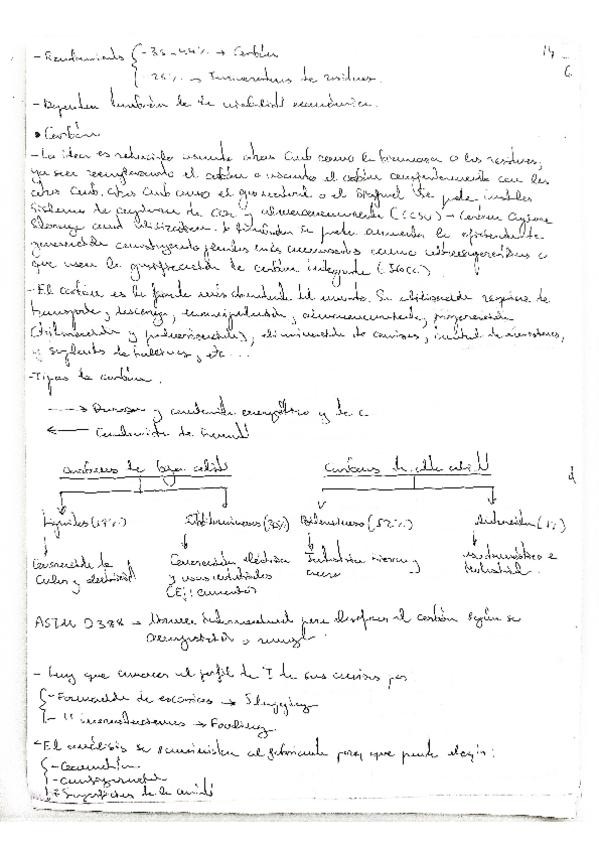 - Rendimiento { - 35-44% → Carbón
- 25% → Incineradoras de residuos.
- Dependen también de la viabilidad económica.
• Carbón
- La idea es reducirlo usando otros comb como la biomasa o los residuos,
ya sea reemplazando el carbón o usando el carbón conjuntamente con los
otros comb. otros comb como el gas natural o el biogual Se puede instalar
Sistema de captura de CO2 y almacenamiento (CCSU) → Carbon Capture
Storage and Utilization. También se puede aumentar la eficiencia de
generación construyendo plantas más avanzadas como ultrasupercríticas o
que usen la gasificación de carbón integrada (IGCC).
- El carbón es la fuente más abundante del mundo. Su utilización requiere de
transporte, descarga, manipulación, almacenamiento, preparación
y pulverización), eliminación de cenizas, control de
y de etc...
- Tipos de carbón.
---→ y contenido energético y de C
←--- Contenido de
Carbones de baja calidad Carbones de alta calidad
Lignitos (17%) Subbituminosos (30%) Bituminosos (52%) Antracita (1%)
Generación de calor y electricidad
Generación eléctrica y usos industriales (Ej: cementos)
Industria y acero
Uso doméstico e industrial.
ASTM D388 → Norma Internacional para clasificar el carbón según su
y rango.
- Hay que conocer el perfil de T de sus cenizas por
{ - Formación de escorias → Slagging
- " incrustaciones → Fouling
- El análisis se suministra al fabricante para que pueda elegir:
- Superficies de la